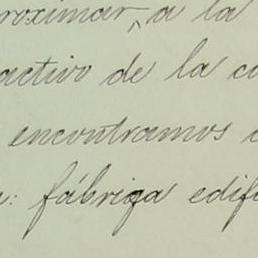 roximar a la
activo de la
encontramos
: fábriga edif